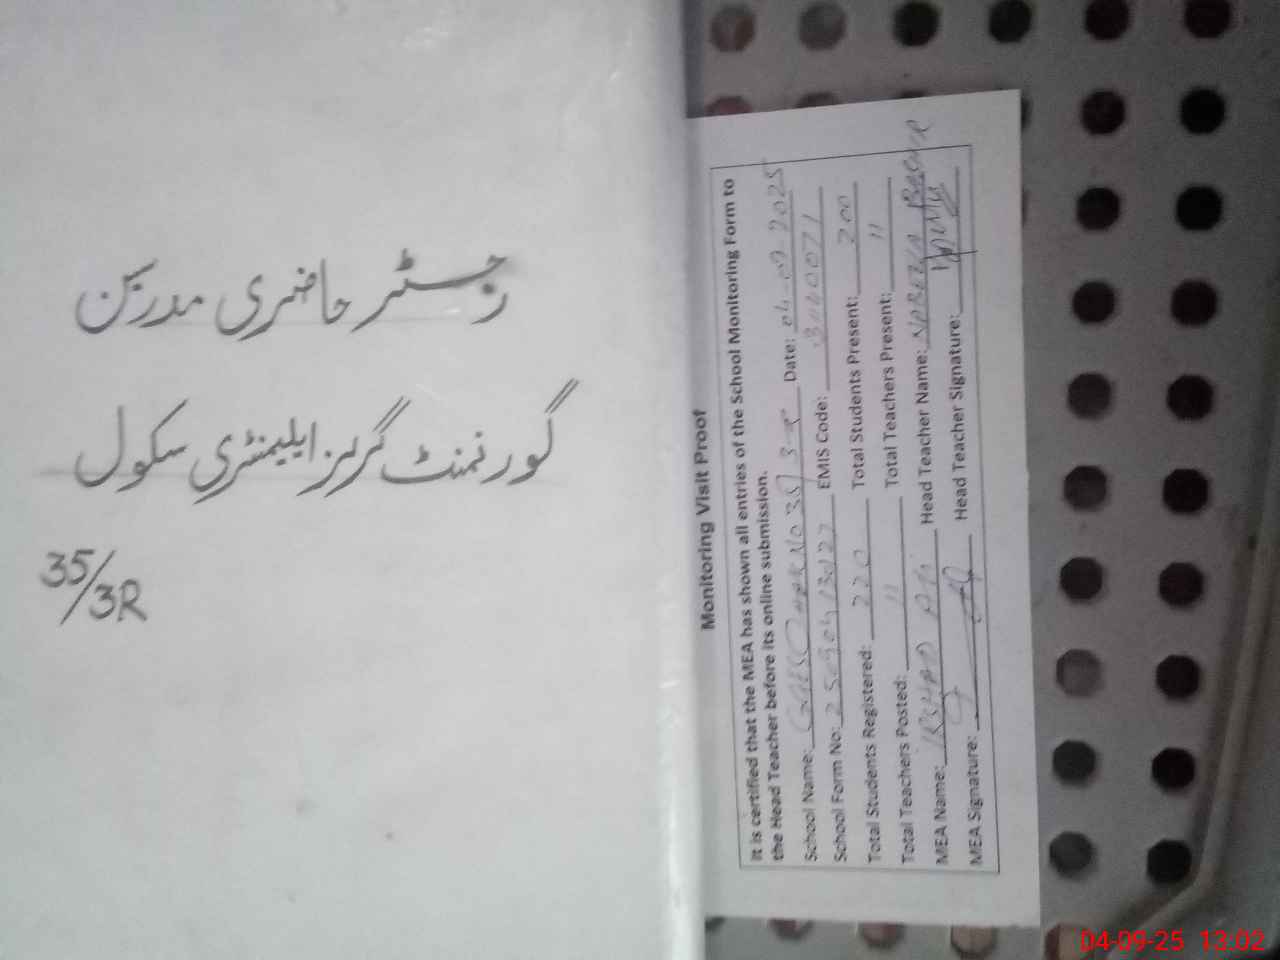 رجسٹر حاضری مدرسین
گورنمنٹ گرلز ایلیمنٹری سکول
35/3R
Monitoring Visit Proof
It is certified that the MEA has shown all entries of the School Monitoring Form to
the Head Teacher before its online submission.
School Name: 35/3-R Date: 04-09-2025
School Form No: EMIS Code:
Total Students Registered: 220 Total Students Present: 200
Total Teachers Posted: 11 Total Teachers Present: 11
MEA Name: IRSHAD Ali Head Teacher Name:
MEA Signature: Head Teacher Signature:
04-09-25 13:02